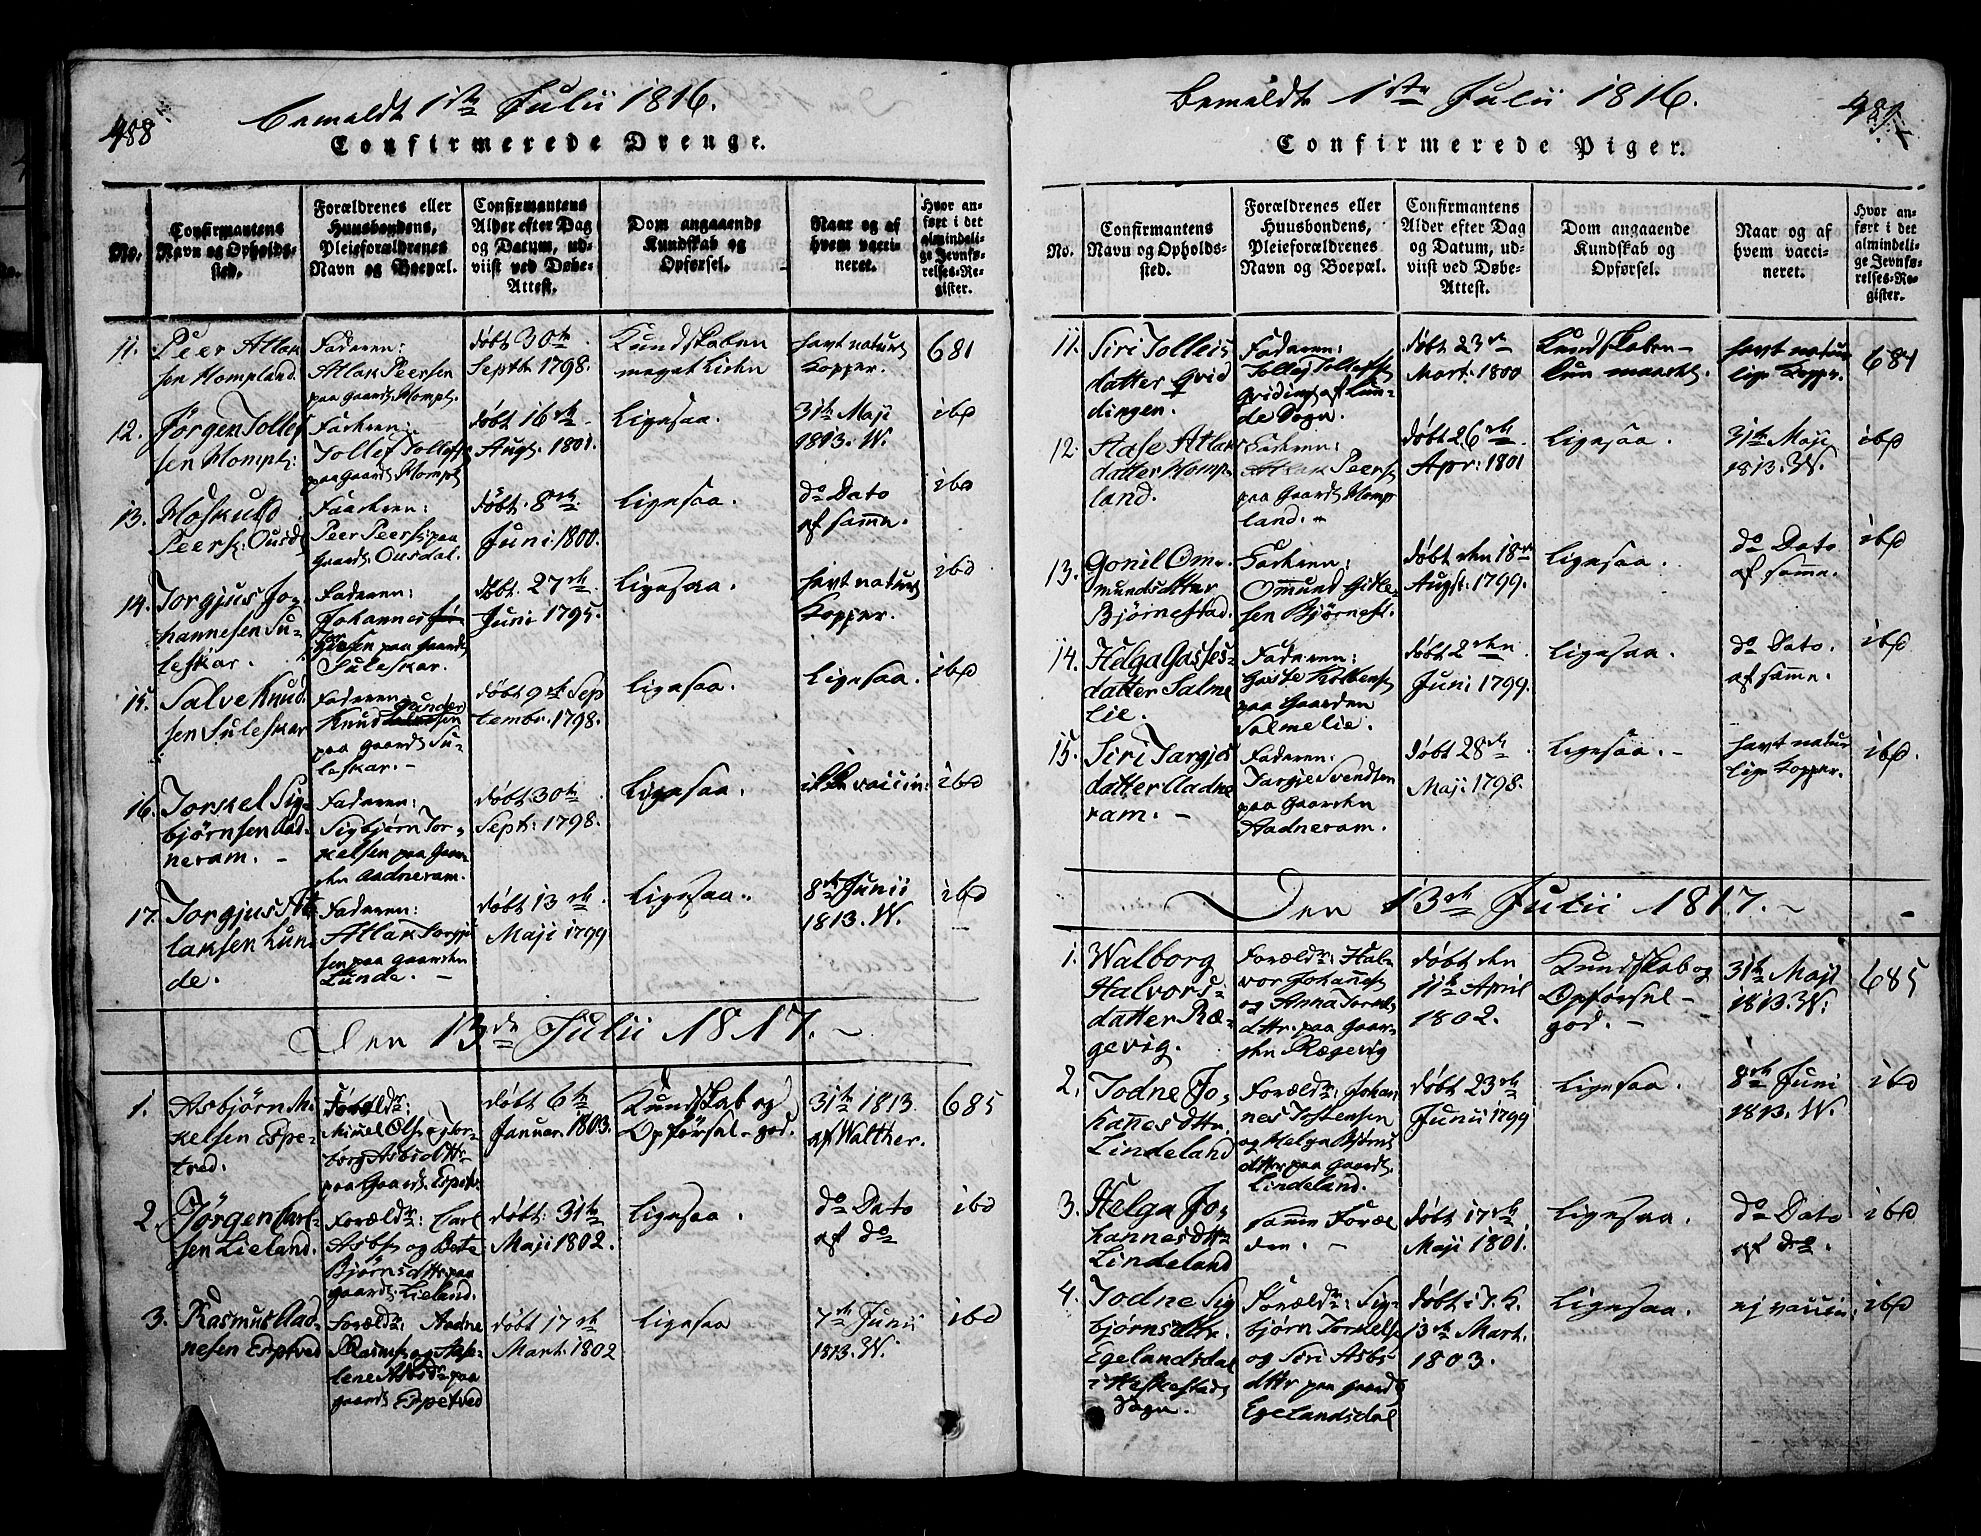 488
bemeldt 1ste Julii 1816.
Confirmerede Drenge.
No.
Confirmantens
Navn og Opholds-
sted.
Forældrenes eller
Huusbondens,
Pleieforældrenes
Navn og Boepæl.
Confirmantens
Alder efter Dag
og Datum, ud-
viist ved Døbe-
Attest.
Dom angaaende
Kundskab og
Opførsel.
Naar og af
hvem vacci-
neret.
Hvor an-
ført i det
almindeli-
ge Jevnfø-
relses-Re-
gister.
11.
Peer Atlak
sen Hompland.
Faderen:
Atlak Peersen
paa Gaard: Hompl.
døbt 30te
Septb. 1798.
Kundskaben
meget liden
havt naturl
Kopper.
681
12.
Jørgen Tollef
sen Hompl:
Faderen:
Tollef Tollefs
paa Gaard: Hompl
døbt 16de
Aug. 1801.
Ligesaa.
31te Maji
1813. W.
ibd
13.
Hoskuld
Peers: Ousd:
Faderen:
Peer Peers: paa
Gaard: Ousdal.
døbt 8de
Juni 1800.
Ligesaa.
do Dato
af samme.
ibd
14.
Torgjus Jo-
hannesen Su-
leskar.
Faderen:
Johannes
Tor
gjesen paa Gaard:
Suleskar.
døbt. 27de
Juni 1795.
Ligesaa.
havt naturl
Kopper.
ibd
15.
Salve Knud
sen Suleskar
Faderen:
Knud Gunder
sen
paa Gaard: Su-
leskar. -
døbt 9de Sep
tembr. 1798.
Ligesaa.
Ligesaa.
ibd
16.
Torkel Sig-
bjørnsen Aad-
neram. -
Faderen:
Sigbjørn Tor-
kelsen paa Gaar-
den Aadneram.
døbt 30te
Sept: 1798.
Ligesaa.
ikke vaccin:
ibd
17.
Torgjus At-
laksen Lun-
de.
Faderen:
Atlak Torgju
sen paa Gaarden
Lunde. -
døbt 13de
Maji 1799
Ligesaa.
8de Junii
1813. W.
ibd
Den 13de Julii 1817. -
1.
Asbjørn Mi-
kelsen Espe-
tved.
Foreldr:
Mikel Ols: og Tor-
borg Asbs dttr
paa Gaard: Espet:
døbt 6te
Januar. 1803.
Kundskab og
Opførsel - god.
31te 1813.
af Walther.
685
2.
Jørgen Carl-
sen Lieland.
Foreldr: Carl
Asbs: og Berte
Bjørnsdttr paa
gaard: Lieland.
døbt: 31te
Maji 1802.
Ligesaa.
do Dato
af do
ibd
3.
Rasmus Aad-
nesen Espetved
Foreldr: Aadne
Rasmus: og
lene Asbsdr paa
gaard: Espetved
døbt 17de
Mart. 1802
Ligesaa
7de Junii
1813. W.
ibd
489
bemeldte 1ste Julii 1816.
Confirmerede Piger.
No.
Confirmantens
Navn og Opholds-
sted.
Forældrenes eller
Huusbondens,
Pleieforældrenes
Navn og Boepæl.
Confirmantens
Alder efter Dag
og Datum, ud-
viist ved Døbe-
Attest.
Dom angaaende
Kundskab og
Opførsel.
Naar og af
hvem vacci-
neret.
Hvor an-
ført i det
almindeli-
ge Jevnfø-
relses-Re-
gister.
11.
Siri Tolleis
datter Qvid
dingen.
Faderen:
af Lun-
de Sogn.
døbt 23de
Mart: 1800
Kundskaben -
kun maadel.
havt natur
lige Kopper.
681
12.
Aase Atlak
datter Homp-
land.
Faderen:
Atlak Peers:
paa Gaard: Homp
land. -
døbt 26de
Apr: 1801
Ligesaa.
31te Maji
1813. W.
ibd
13.
Gonil Om-
mundsdtter
Bjørnestad.
Faderen:
Ommund Gidle-
sen Bjørnest.
døbt den 18de
Augst: 1799.
Ligesaa.
do Dato
af samme.
ibd
14.
Helga Gasses-
datter Salme
lie.
Faderen:
paa Gaarden
Salmelie.
døbt 2den
Juni 1799.
Ligesaa.
do Dato.
af samme.
ibd
15.
Siri Targjes
datter Aadne
ram. -
Faderen:
Targje Svendsen
paa Gaarden
Aadneram.
døbt 28de
Maji 1798.
Ligesaa. -
havt natur
lige Kopper.
ibd.
Den 13de Julii 1817. -
1.
Walborg
Halvors-
datter Ræ-
gevig.
Foreldr: Hal-
vor Johannes
og Anna
dttr. paa Gaar-
den Rægevig
døbt den
11te April
1802.
Kundskab og
Opførsel -
god. -
31te Maji
1813. W.
685
2.
Todne Jo-
hanesdttr.
Lindeland
Foreldr: Johan-
nes Tostensen
og Helga Bjørns
dttr paa Gaard:
Lindeland.
døbt 23de
Junii 1799
Ligesaa.
8de Juni
1813. W.
ibd
3.
Helga Jo-
hannesdttr
Lindeland
samme Foræl
dre. -
døbt 17de
Maji 1801.
Ligesaa.
do Dato
af do.
ibd
4.
Todne Sig
bjørnsdttr.
Egelandsdal
i Heskestads
Sogn.
Foreldr: Sig-
bjørn Torkels
og Siri Asbs
dttr paa Gaard:
Egelandsdal
døbt i T. K.
13de Mart.
1803.
Ligesaa.
ej vaccin:
ibd